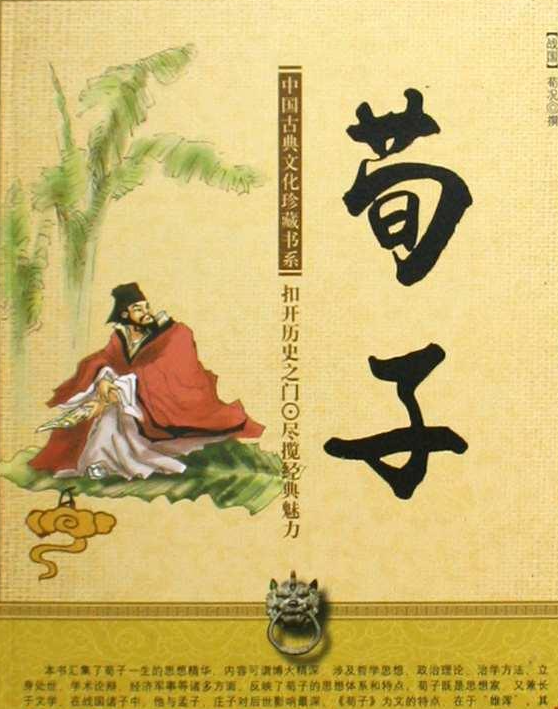 【战国】荀况◎撰
荀子
中国古典文化珍藏书系
扣开历史之门⊙尽揽经典魅力
本书汇集了荀子一生的思想精华，内容可谓博大精深，涉及哲学思想、政治理论、治学方法、立
身处世、学术论辩、经济军事等诸多方面，反映了荀子的思想体系和特点。荀子既是思想家，又兼长
于文学，在战国诸子中，他与孟子、庄子对后世影响最深，《荀子》为文的特点，在于“雄浑”，其